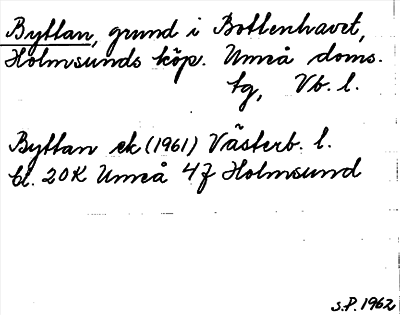 Byttan, grund i Bottenhavet,
Holmsunds köp. Umeå doms.
tg, Vb. l.
Byttan ek (1961) Västerb. l.
bl. 20K Umeå 4f Holmsund
S.P. 1962